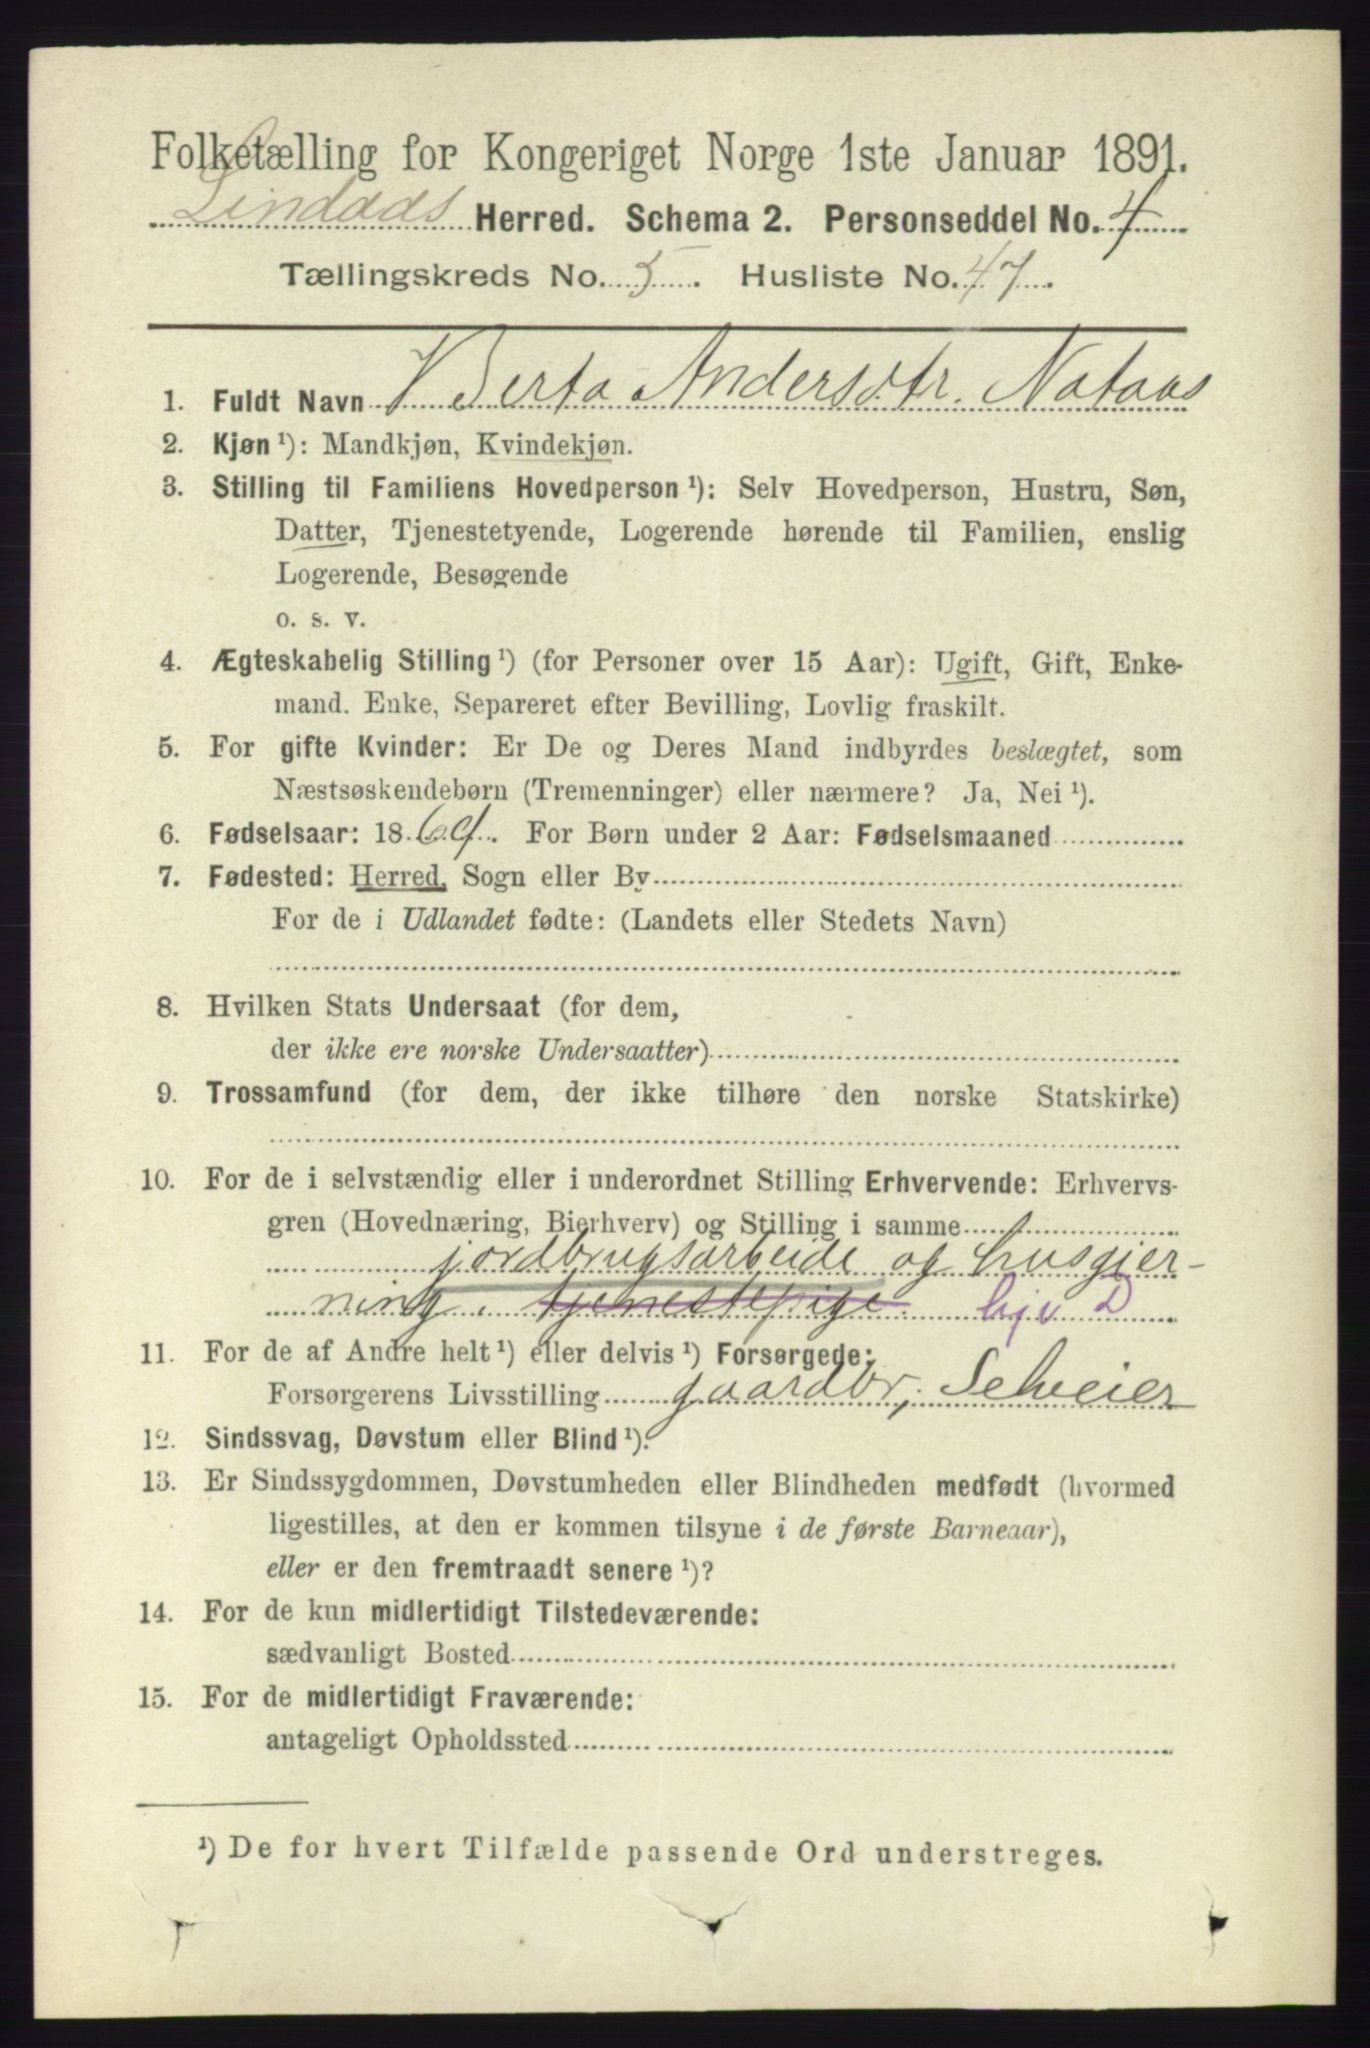 Folketælling for Kongeriget Norge 1ste Januar 1891.
Lindaas Herred. Schema 2. Personseddel No. 4
Tællingskreds No. 5. Husliste No. 47.
1. Fuldt Navn Berta Andersdtr. Nataas
2. Kjøn ¹): Mandkjøn, Kvindekjøn.
3. Stilling til Familiens Hovedperson ¹): Selv Hovedperson, Hustru, Søn,
Datter, Tjenestetyende, Logerende hørende til Familien, enslig
Logerende, Besøgende
o. s. v.
4. Ægteskabelig Stilling ¹) (for Personer over 15 Aar): Ugift, Gift, Enke-
mand. Enke, Separeret efter Bevilling, Lovlig fraskilt.
5. For gifte Kvinder: Er De og Deres Mand indbyrdes beslægtet, som
Næstsøskendebørn (Tremenninger) eller nærmere? Ja, Nei ¹).
6. Fødselsaar: 1869. For Børn under 2 Aar: Fødselsmaaned
7. Fødested: Herred, Sogn eller By
For de i Udlandet fødte: (Landets eller Stedets Navn)
8. Hvilken Stats Undersaat (for dem,
der ikke ere norske Undersaatter)
9. Trossamfund (for dem, der ikke tilhøre den norske Statskirke)
10. For de i selvstændig eller i underordnet Stilling Erhvervende: Erhvervs-
gren (Hovednæring, Bierhverv) og Stilling i samme
jordbrugsarbeide og husgjer-
ning, tjenestepige. hjv D
11. For de af Andre helt ¹) eller delvis ¹) Forsørgede:
Forsørgerens Livsstilling gaardbr, Selveier
12. Sindssvag, Døvstum eller Blind ¹).
13. Er Sindssygdommen, Døvstumheden eller Blindheden medfødt (hvormed
ligestilles, at den er kommen tilsyne i de første Barneaar),
eller er den fremtraadt senere ¹)?
14. For de kun midlertidigt Tilstedeværende:
sædvanligt Bosted
15. For de midlertidigt Fraværende:
antageligt Opholdssted
¹) De for hvert Tilfælde passende Ord understreges.